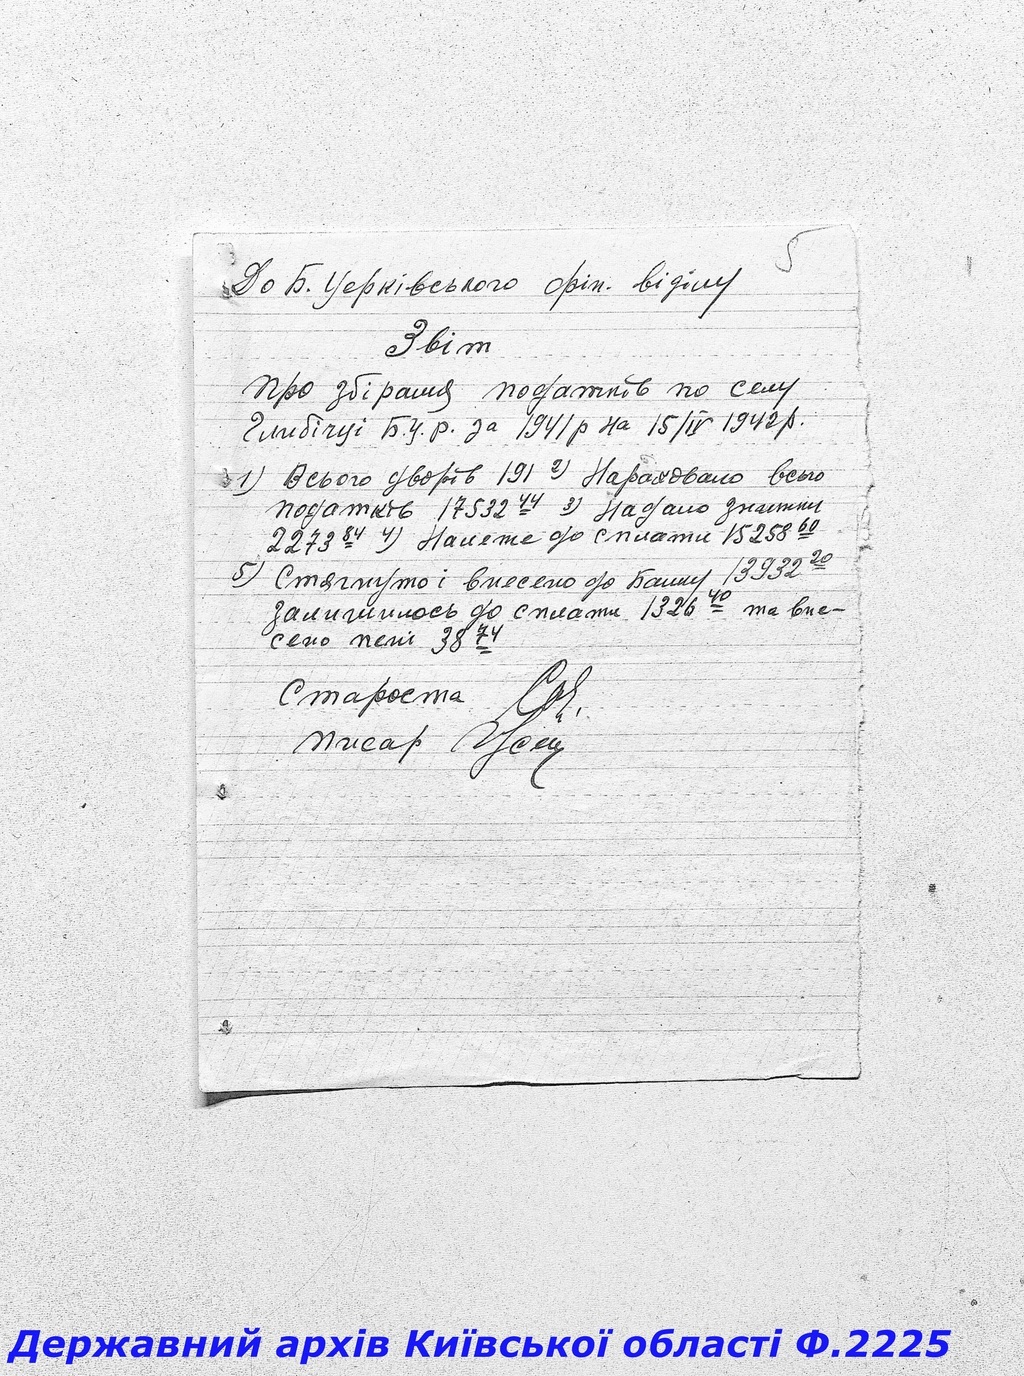 5
До Б. Церківського фін. віділу
Звіт
про збірання податків по селу
Глибічці Б.Ц.р. за 1941 р на 15/IV 1942 р.
1) Всього дворів 191 2) Нараховано всього
податків 17532 44 3) Надано знижки
2273 84 4) Належе до сплати 15258 60
5) Стягнуто і внесено до банку 13932 20
залишилось до сплати 1326 40 та вне-
сено пені 38 74
Староста
писар
Державний архів Київської області Ф.2225